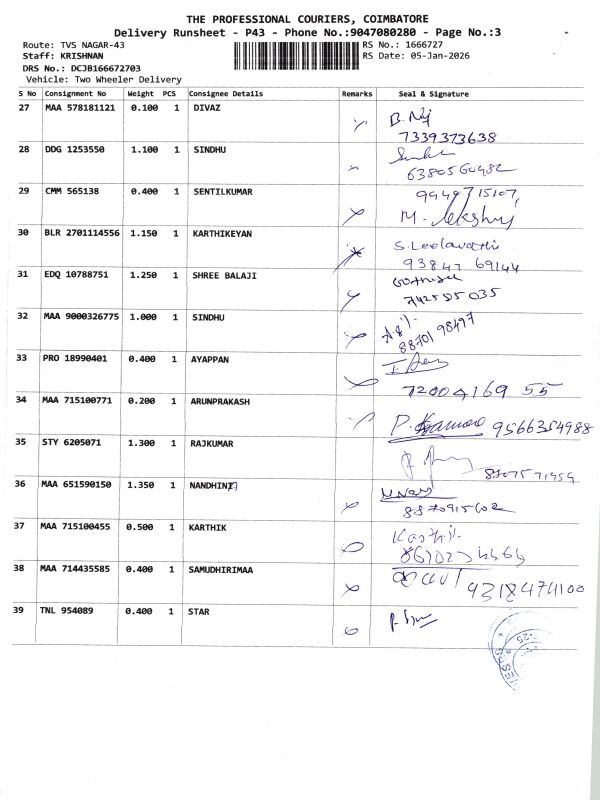 THE PROFESSIONAL COURIERS, COIMBATORE
Delivery Runsheet - P43 - Phone No.:9047080280 - Page No.:3
Route: TVS NAGAR-43 RS No.: 1666727
Staff: KRISHNAN RS Date: 05-Jan-2026
DRS No.: DCJB166672703
Vehicle: Two Wheeler Delivery
S No Consignment No Weight PCS Consignee Details Remarks Seal & Signature
27 MAA 578181121 0.100 1 DIVAZ
7339373638
28 DDG 1253550 1.100 1 SINDHU
6380560482
29 CMM 565138 0.400 1 SENTILKUMAR
30 BLR 2701114556 1.150 1 KARTHIKEYAN S.Leelavathi
93847 69144
31 EDQ 10788751 1.250 1 SHREE BALAJI
32 MAA 9000326775 1.000 1 SINDHU
88701 98497
33 PRO 18990401 0.400 1 AYAPPAN
72004169 55
34 MAA 715100771 0.200 1 ARUNPRAKASH
9566354988
35 STY 6205071 1.300 1 RAJKUMAR
36 MAA 651590150 1.350 1 NANDHINI
8870915602
37 MAA 715100455 0.500 1 KARTHIK Karthik
38 MAA 714435585 0.400 1 SAMUDHIRIMAA
9318474100
39 TNL 954089 0.400 1 STAR